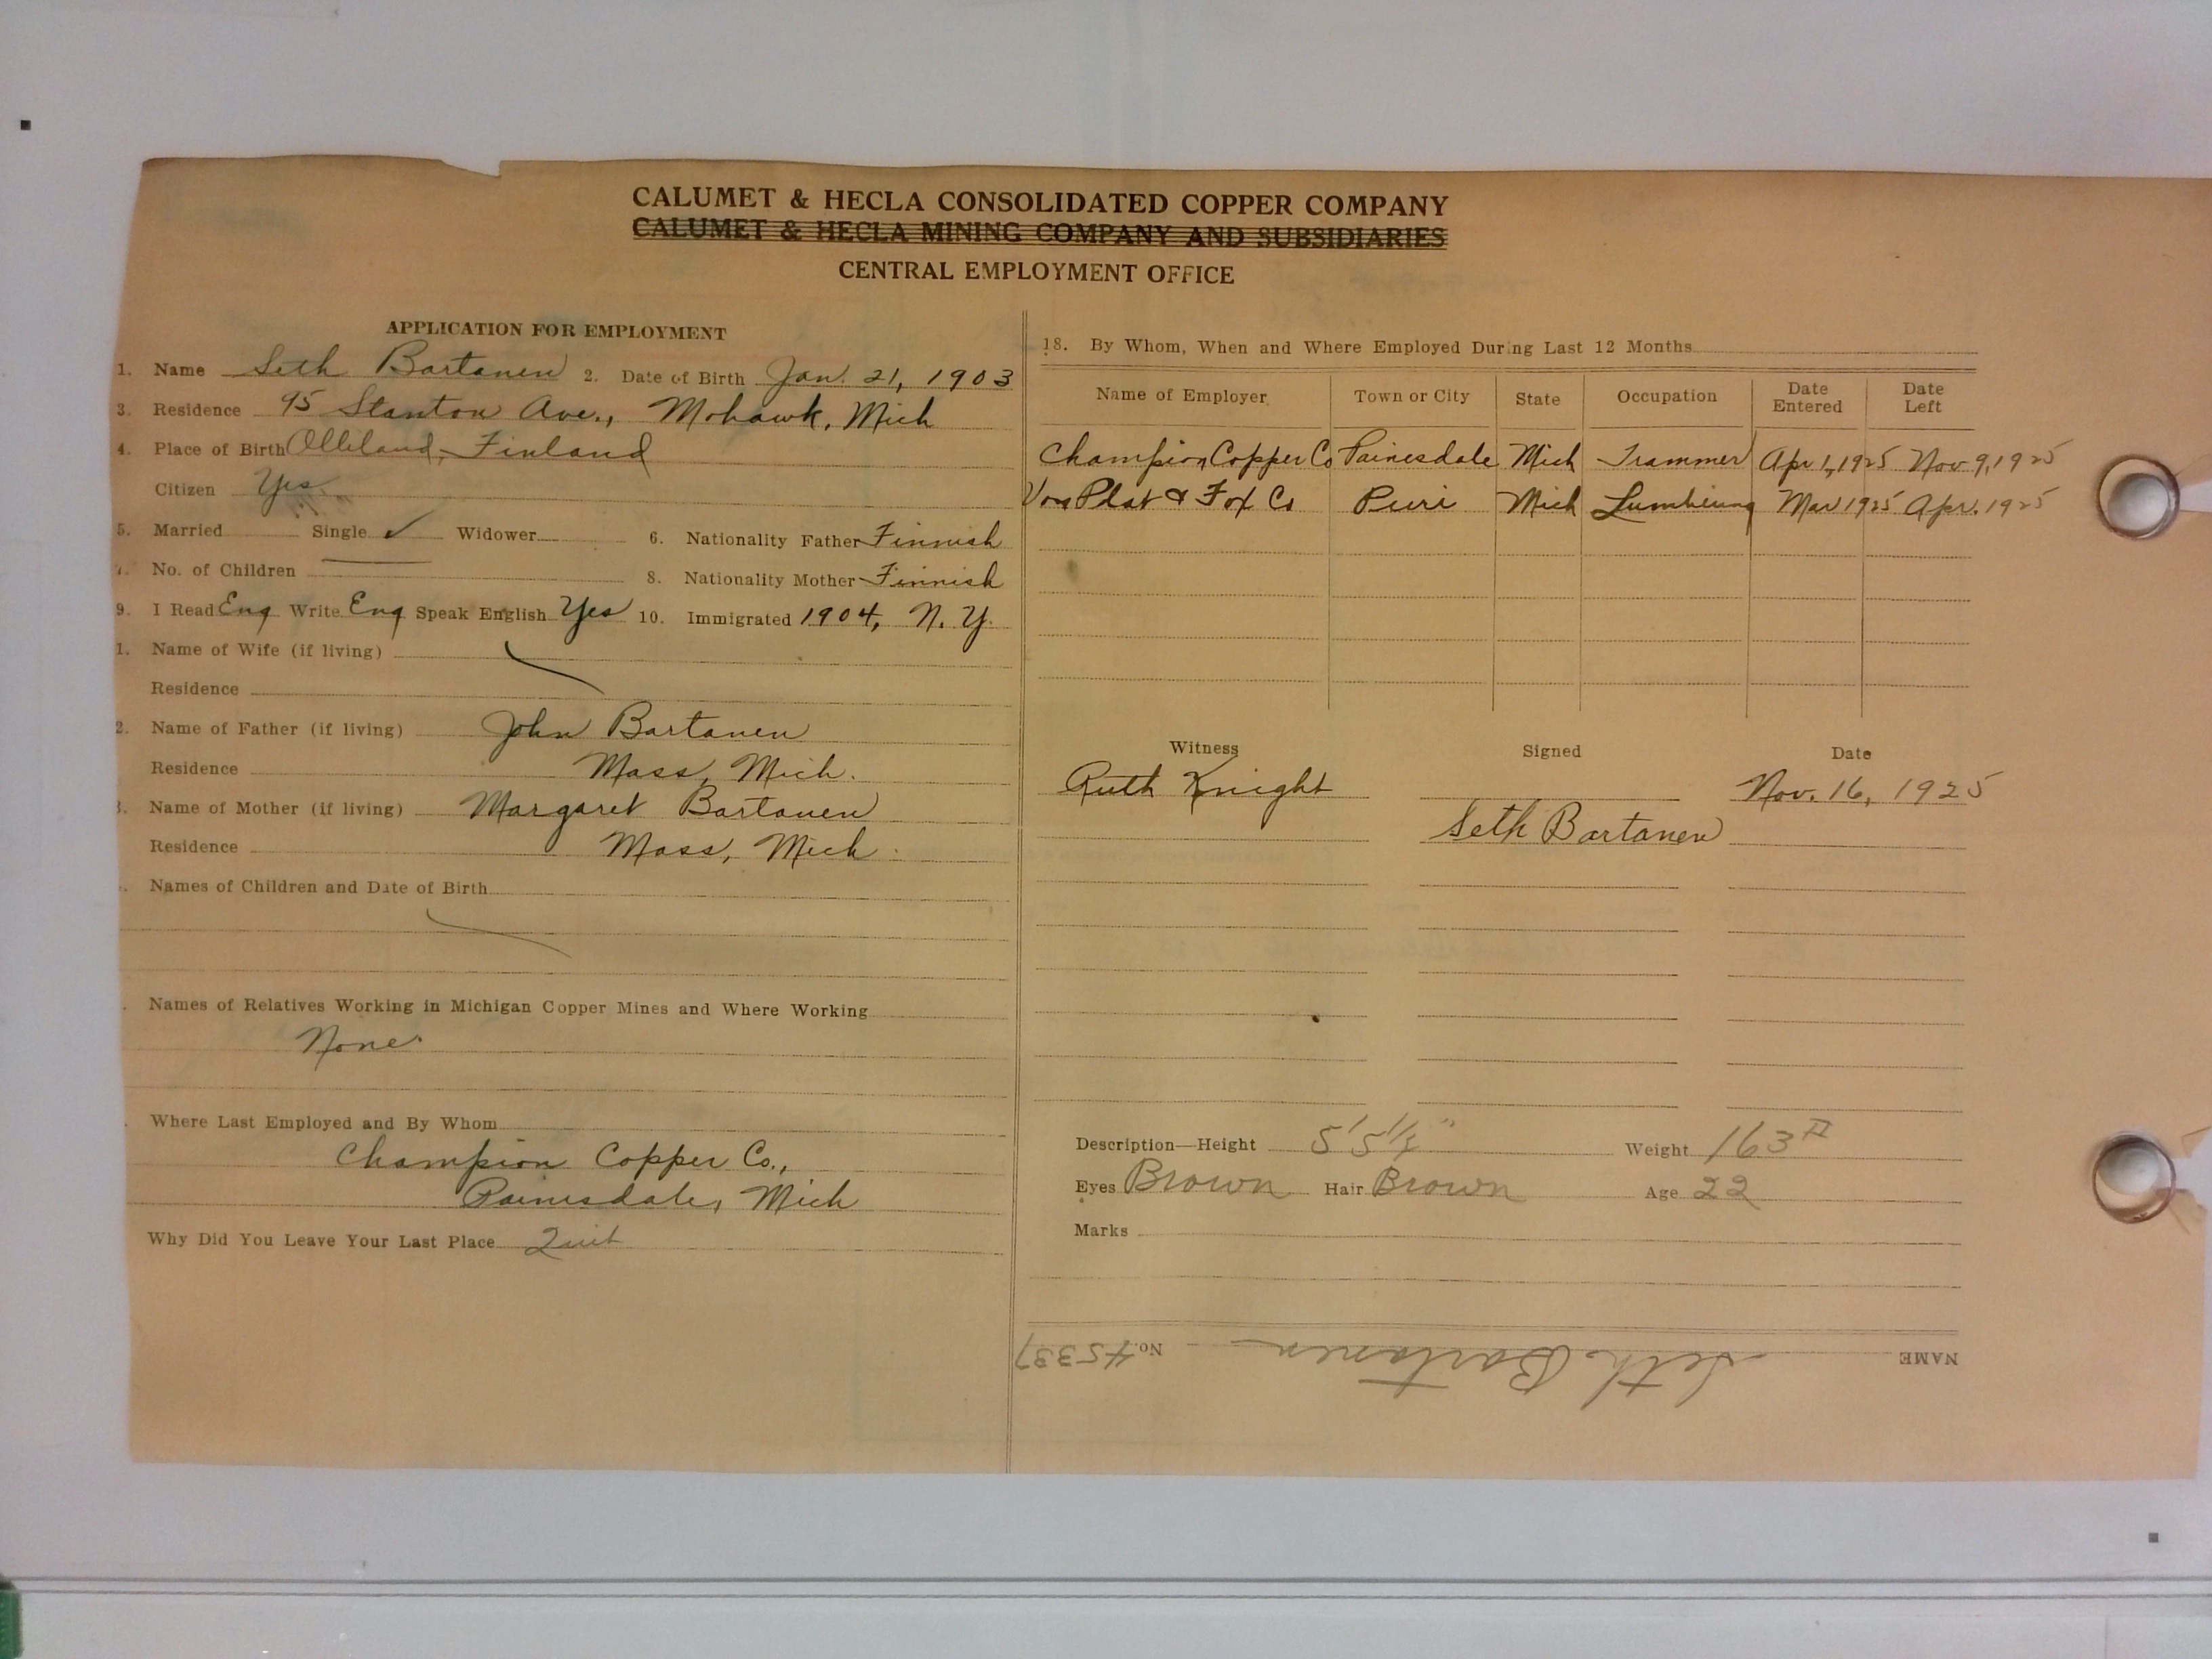 CALUMET & HECLA CONSOLIDATED COPPER COMPANY
CALUMET & HECLA MINING COMPANY AND SUBSIDIARIES
CENTRAL EMPLOYMENT OFFICE
APPLICATION FOR EMPLOYMENT
1. Name Seth Bartanen 2. Date of Birth Jan. 21, 1903
3. Residence 95 Stanton Ave., Mohawk, Mich
4. Place of Birth Finland
Citizen Yes
5. Married Single ✓ Widower 6. Nationality Father Finnish
7. No. of Children 8. Nationality Mother Finnish
9. I Read Eng Write Eng Speak English Yes 10. Immigrated 1904, N. Y.
1. Name of Wife (if living)
Residence
2. Name of Father (if living) John Bartanen
Residence Mass, Mich.
3. Name of Mother (if living) Margaret Bartanen
Residence Mass, Mich
Names of Children and Date of Birth
Names of Relatives Working in Michigan Copper Mines and Where Working
None.
Where Last Employed and By Whom
Champion Copper Co.,
Painesdale, Mich
Why Did You Leave Your Last Place Quit
18. By Whom, When and Where Employed During Last 12 Months
Name of Employer Town or City State Occupation Date Entered Date Left
Champion Copper Co Painesdale Mich Trammer Apr 1, 1925 Nov 9, 1925
& Fox Co Mich Mar 1925 Apr. 1925
Witness Signed Date
Ruth Knight Nov. 16, 1925
Seth Bartanen
Description—Height 5' 5 1/2" Weight 163 #
Eyes Brown Hair Brown Age 22
Marks
NAME Seth Bartanen No. 45337